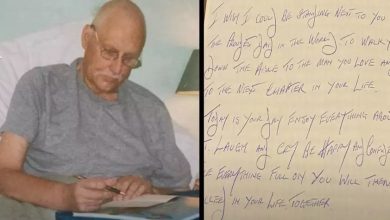 I WISH I COULD BE STANDING NEXT TO YOU
THE PROUDEST DAD IN THE WORLD TO WALK Y
DOWN THE AISLE TO THE MAN YOU LOVE AN
TO THE NEXT CHAPTER IN YOUR LIFE.
TODAY IS YOUR DAY ENJOY EVERYTHING ABOU
LAUGH AND CRY BE HAPPY AND
EVERYTHING FULL ON YOU WILL
IN YOUR LIFE TOGETHER